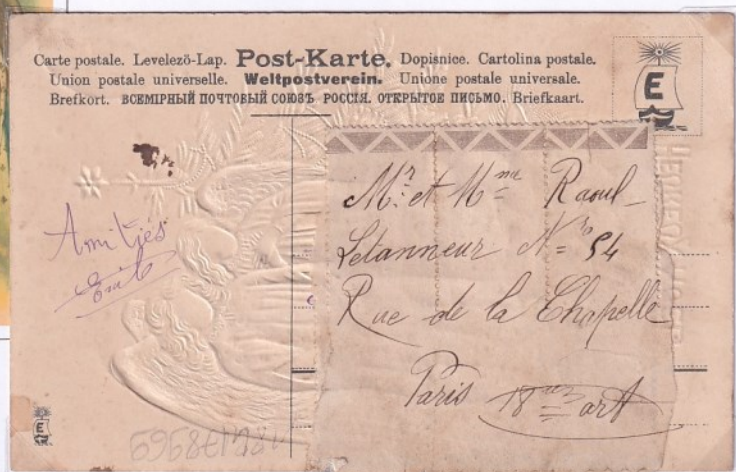 Carte postale. Levelezö-Lap. Post-Karte. Dopisnice. Cartolina postale.
Union postale universelle. Weltpostverein. Unione postale universale.
Brefkort. ВСЕМІРНЫЙ ПОЧТОВЫЙ СОЮЗЪ РОССІЯ. ОТКРЫТОЕ ПИСЬМО. Briefkaart.
E
Mr. et Mme Raoul
Letanneur No 54
Rue de la Chapelle
Paris 18me art
Amitiés
Emile
E